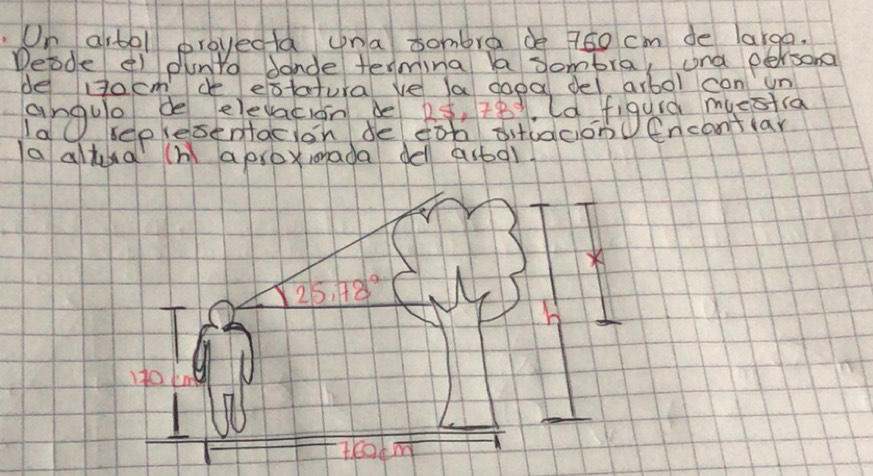 . Un arbol proyecta una sombra de 760 cm de largo.
Desde el punto donde termina la sombra, una persona
de 170 cm de estatura ve la copa del arbol con un
angulo de elevación de 25,78°. La figura muestra
la representación de esta situación. Encontrar
la altura (h) aproximada del arbol.
25,78°
x
h
170 cm
760cm